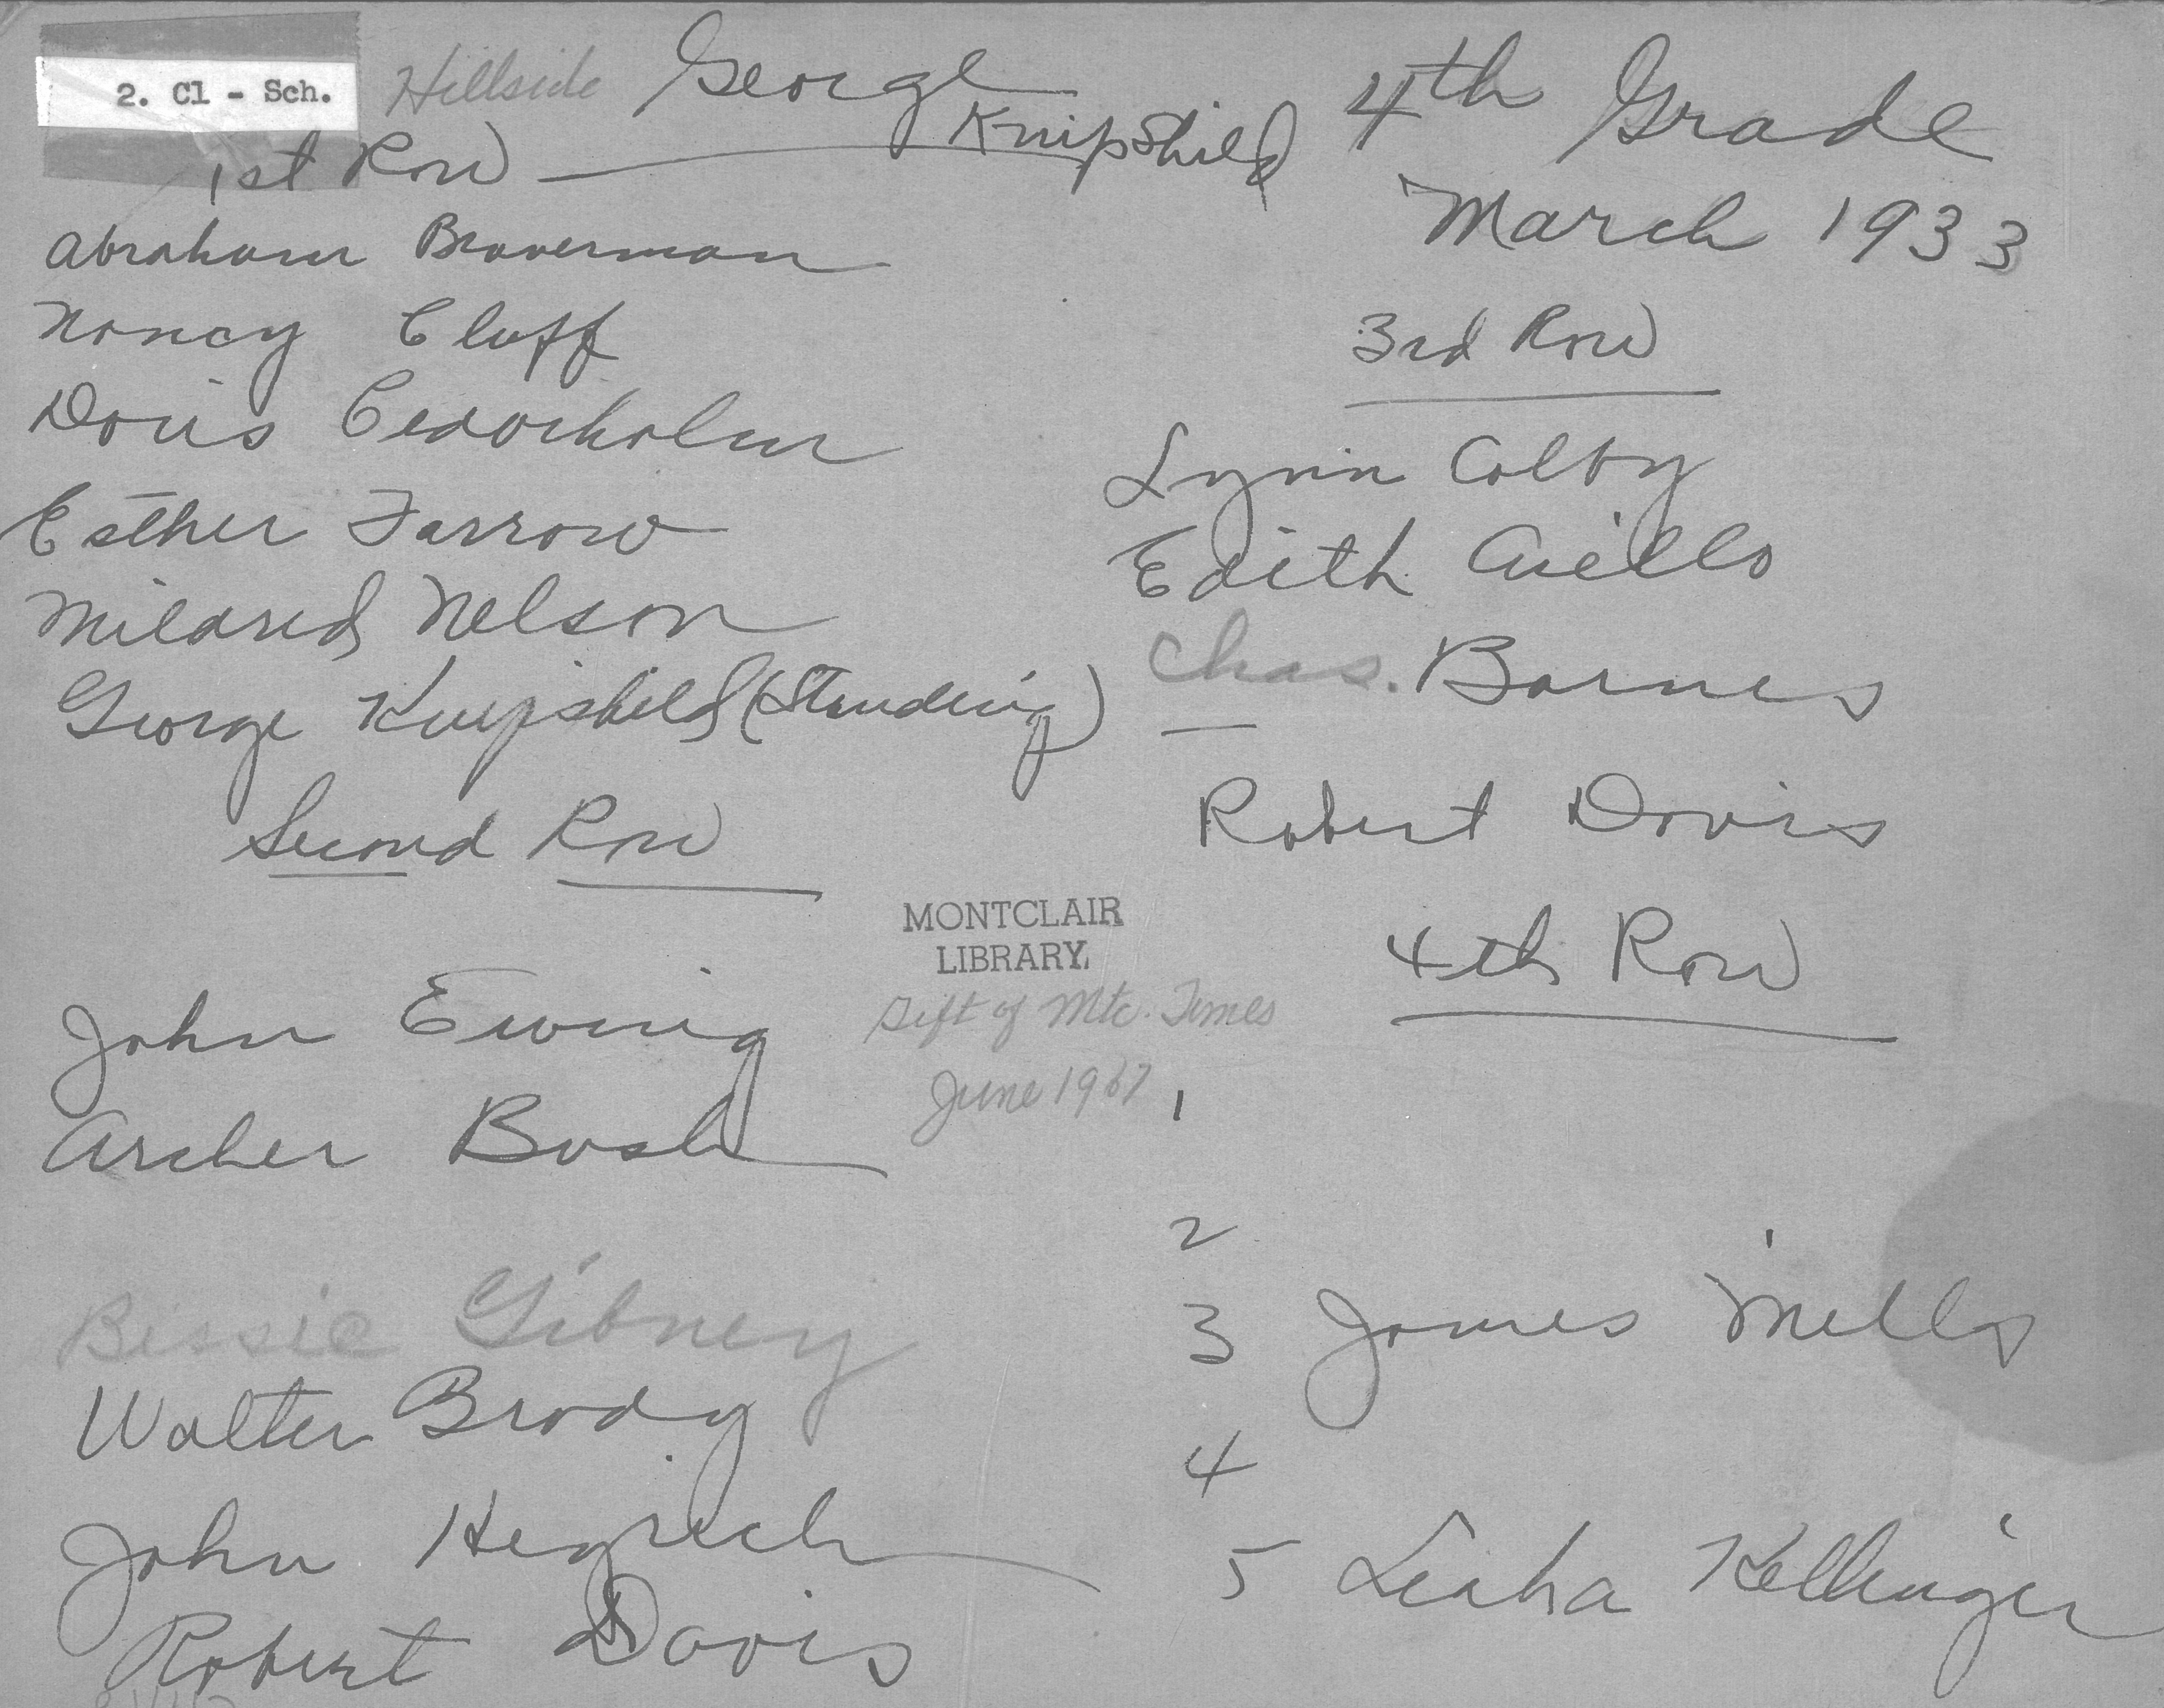 2. Cl - Sch.
Hillside George
Knipshild
1st Row
Abraham Braverman
Nancy Cluff
Doris Cedarholm
Esther Farrow
Mildred Nelson
George Knipshild (Standing)
Second Row
John Ewing
Archer Bush
Bessie Gibney
Walter Brody
John
Robert Davis
4th Grade
March 1933
3rd Row
Lynn Colby
Edith Aiello
Chas. Barnes
Robert Davis
4th Row
1
2
3 James Mills
4
5 Kellinger
MONTCLAIR
LIBRARY
Gift of Mtc. Times
June 1967